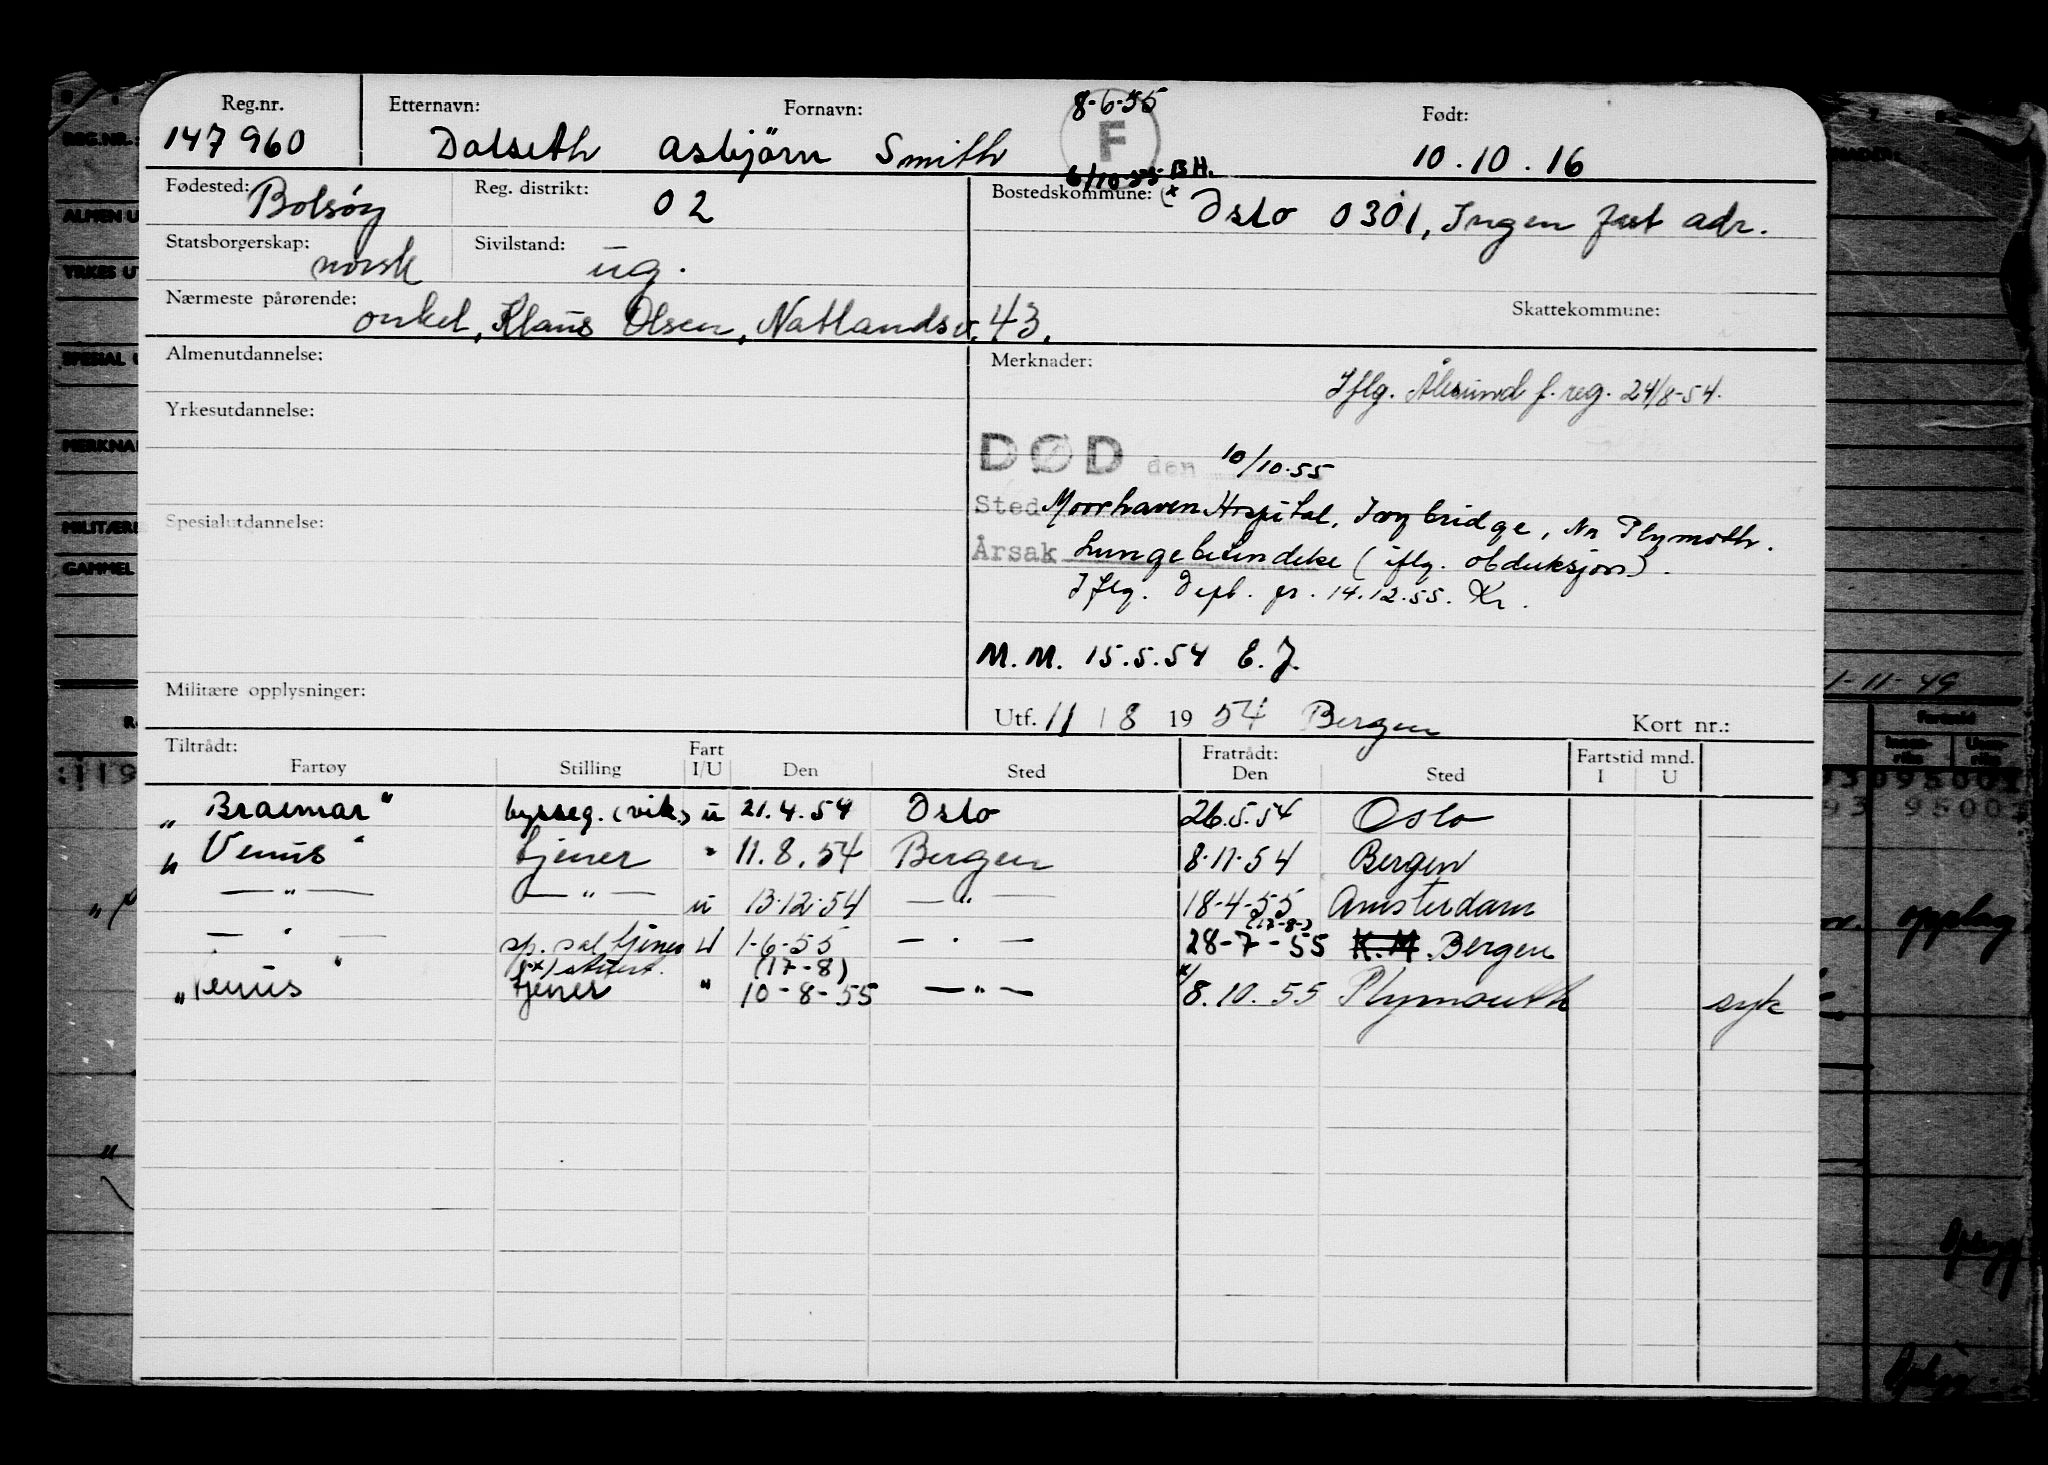 Reg.nr. Etternavn: Fornavn: 8-6-55 Født:
147960 Dalseth Asbjörn Smith F 10.10.16
6/10-55 BH.
Fødested: Bolsöy Reg. distrikt: 02 Bostedskommune: Oslo 0301, Ingen fast adr.
Statsborgerskap: norsk Sivilstand: ug.
Nærmeste pårørende: onkel, Klaus Olsen, Natlandsv. 43. Skattekommune:
Almenutdannelse: Merknader:
Iflg. Ålesund f. reg. 24/8-54.
Yrkesutdannelse:
DØD den 10/10.55
Sted Moorhaven Hospital, Ivybridge, Nr Plymoth.
Spesialutdannelse:
Årsak Lungebetendelse (iflg. obduksjon).
Iflg. Dept. pr. 14.12.55. Kr.
M.M. 15.5.54 E.J.
Militære opplysninger:
Utf. 11 / 8 1954 Bergen Kort nr.:
Tiltrådt: Fart Fratrådt: Fartstid mnd.
Fartøy Stilling I/U Den Sted Den Sted I U
"Braemar" bysseg. (vik.) u 21.4.54 Oslo 26.5.54 Oslo
"Venus" tjener " 11.8.54 Bergen 8.11.54 Bergen
— " — — " — u 13.12.54 — " — 18-4-55 Amsterdam
(17-8-)
— " — sp. sal tjener U 1-6-55 — " — 28-7-55 K.M. Bergen
(17-8)
"Venus" tjener " 10-8-55 — " — x/8.10.55 Plymouth syk